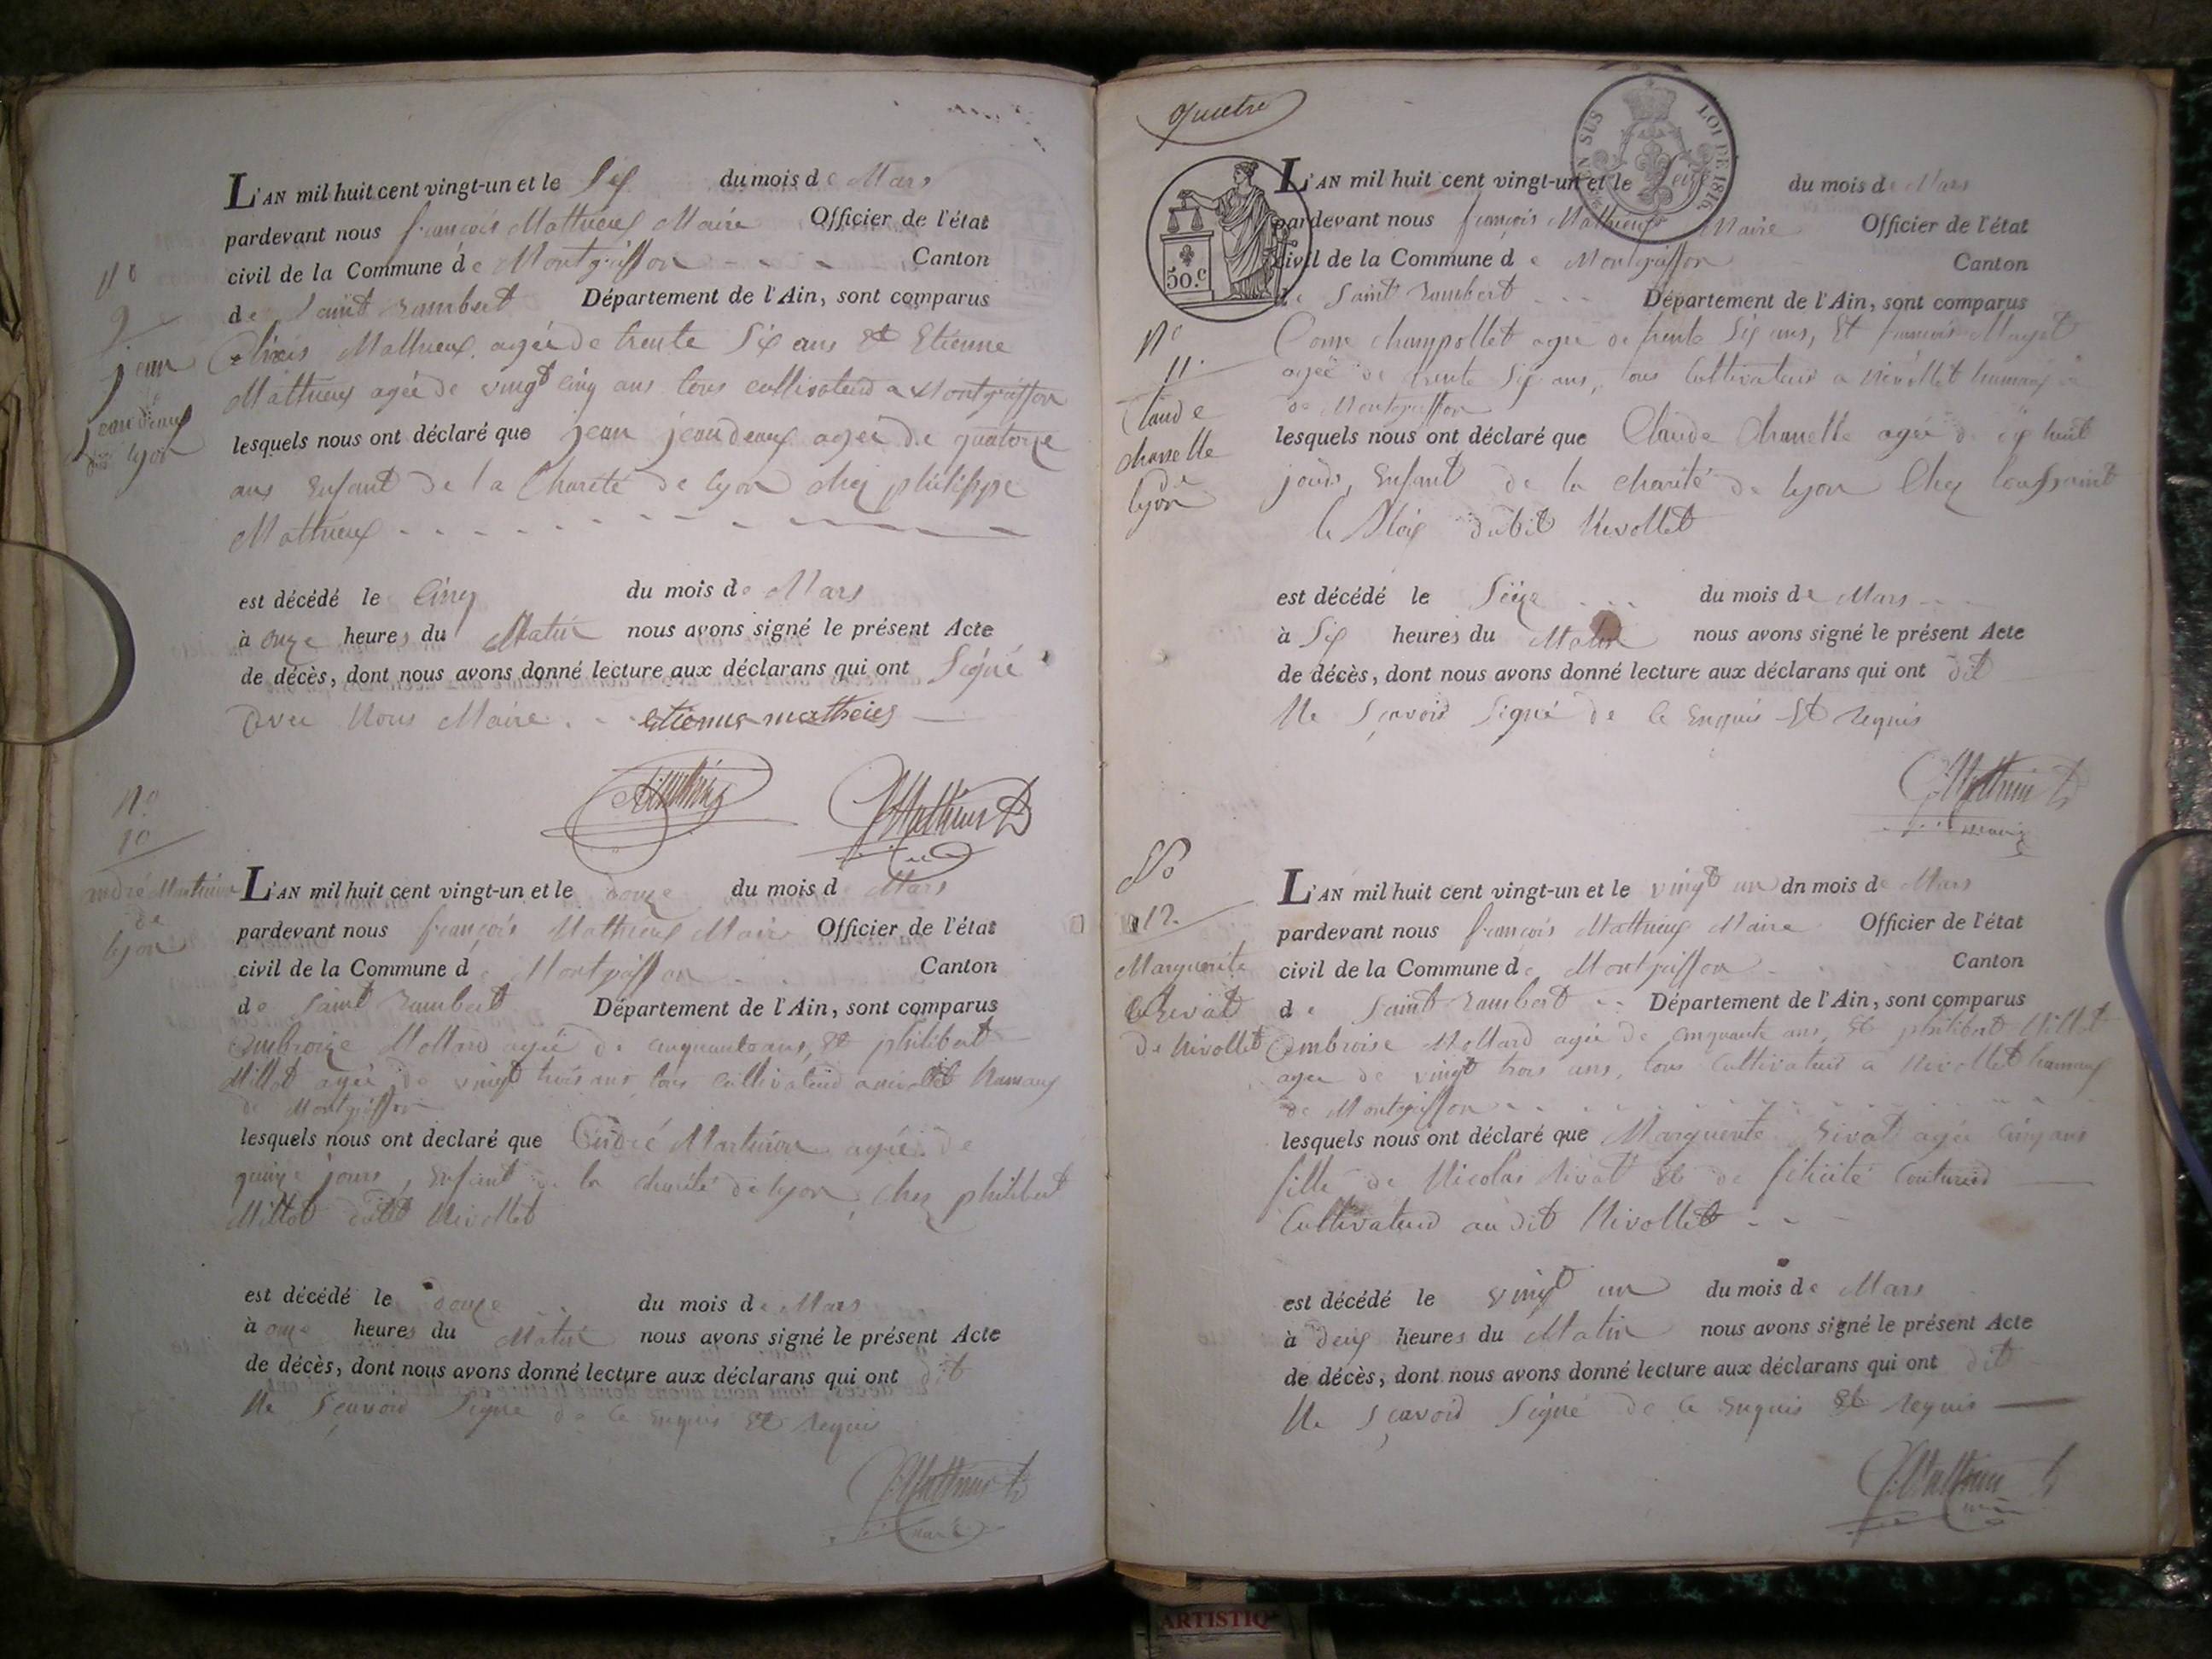 N°
9
jean
jeandeaux
de lyon
L'AN mil huit cent vingt-un et le Six du mois de Mars
pardevant nous françois Mathieux Maire Officier de l'état
civil de la Commune de Montgriffon Canton
de Saint rambert Département de l'Ain, sont comparus
Alixis Mathieux agée de trente Six ans Et Etienne
Mathieux agée de vingt cinq ans tous cultivateurs a Montgriffon
lesquels nous ont déclaré que jean jeandeaux agée de quatorze
ans Enfant de la Charité de lyon chez philippe
Mathieux
est décédé le Cinq du mois de Mars
à onze heures du Matin nous avons signé le présent Acte
de décès, dont nous avons donné lecture aux déclarans qui ont Signé
avec Nous Maire. etienne mathieus
N°
10
andré Martinion
de
lyon
L'AN mil huit cent vingt-un et le douze du mois de Mars
pardevant nous françois Mathieux Maire Officier de l'état
civil de la Commune de Montgriffon Canton
de Saint rambert Département de l'Ain, sont comparus
Ambroize Mollard agée de cinquante ans, Et philibert
Millot agée de vingt trois ans tous cultivateurs a nivollet hamaux
de Montgriffon
lesquels nous ont declaré que André Martinion agée de
quinze jours, Enfant de la charité de lyon, chez philibert
Millot Nivollet
est décédé le douze du mois de Mars
à onze heures du Matin nous avons signé le présent Acte
de décès, dont nous avons donné lecture aux déclarans qui ont dit
Ne Sçavoir Signé de ce Enquis Et requis
quatre
EN SUS LOI DE 1816.
50.c
N°
11.
Claude
chanelle
de
lyon
L'AN mil huit cent vingt-un et le du mois de Mars
pardevant nous françois Mathieux Maire Officier de l'état
civil de la Commune de Montgriffon Canton
de Saint rambert Département de l'Ain, sont comparus
Come champollet agée de trente Six ans, Et françois
agée de trente Six ans, tous Cultivateurs a nivollet hamaux
de Montgriffon
lesquels nous ont déclaré que Claude Chanelle agée de dix huit
jours, Enfant de la charité de lyon Chez toussaint
Nivollet
est décédé le Seize du mois de Mars
à Six heures du Matin nous avons signé le présent Acte
de décès, dont nous avons donné lecture aux déclarans qui ont dit
Ne Sçavoir Signé de ce Enquis Et requis
N°
12.
Marguerite
Rivat
De Nivollet
L'AN mil huit cent vingt-un et le vingt un dn mois de Mars
pardevant nous françois Mathieux Maire Officier de l'état
civil de la Commune de Montgriffon Canton
de Saint rambert Département de l'Ain, sont comparus
Ambroise Mollard agée de cinquante ans, Et philibert Millot
agée de vingt trois ans, tous Cultivateurs a Nivollet hamaux
de Montgriffon
lesquels nous ont déclaré que Marguerite Rivat agée Cinq ans
fille de Nicolas Rivat Et de félicité Couturier
Cultivateurs au dit Nivollet
est décédé le vingt un du mois de Mars
à deux heures du Matin nous avons signé le présent Acte
de décès, dont nous avons donné lecture aux déclarans qui ont dit
Ne Sçavoir Signé de ce Enquis Et requis
ARTISTIQ